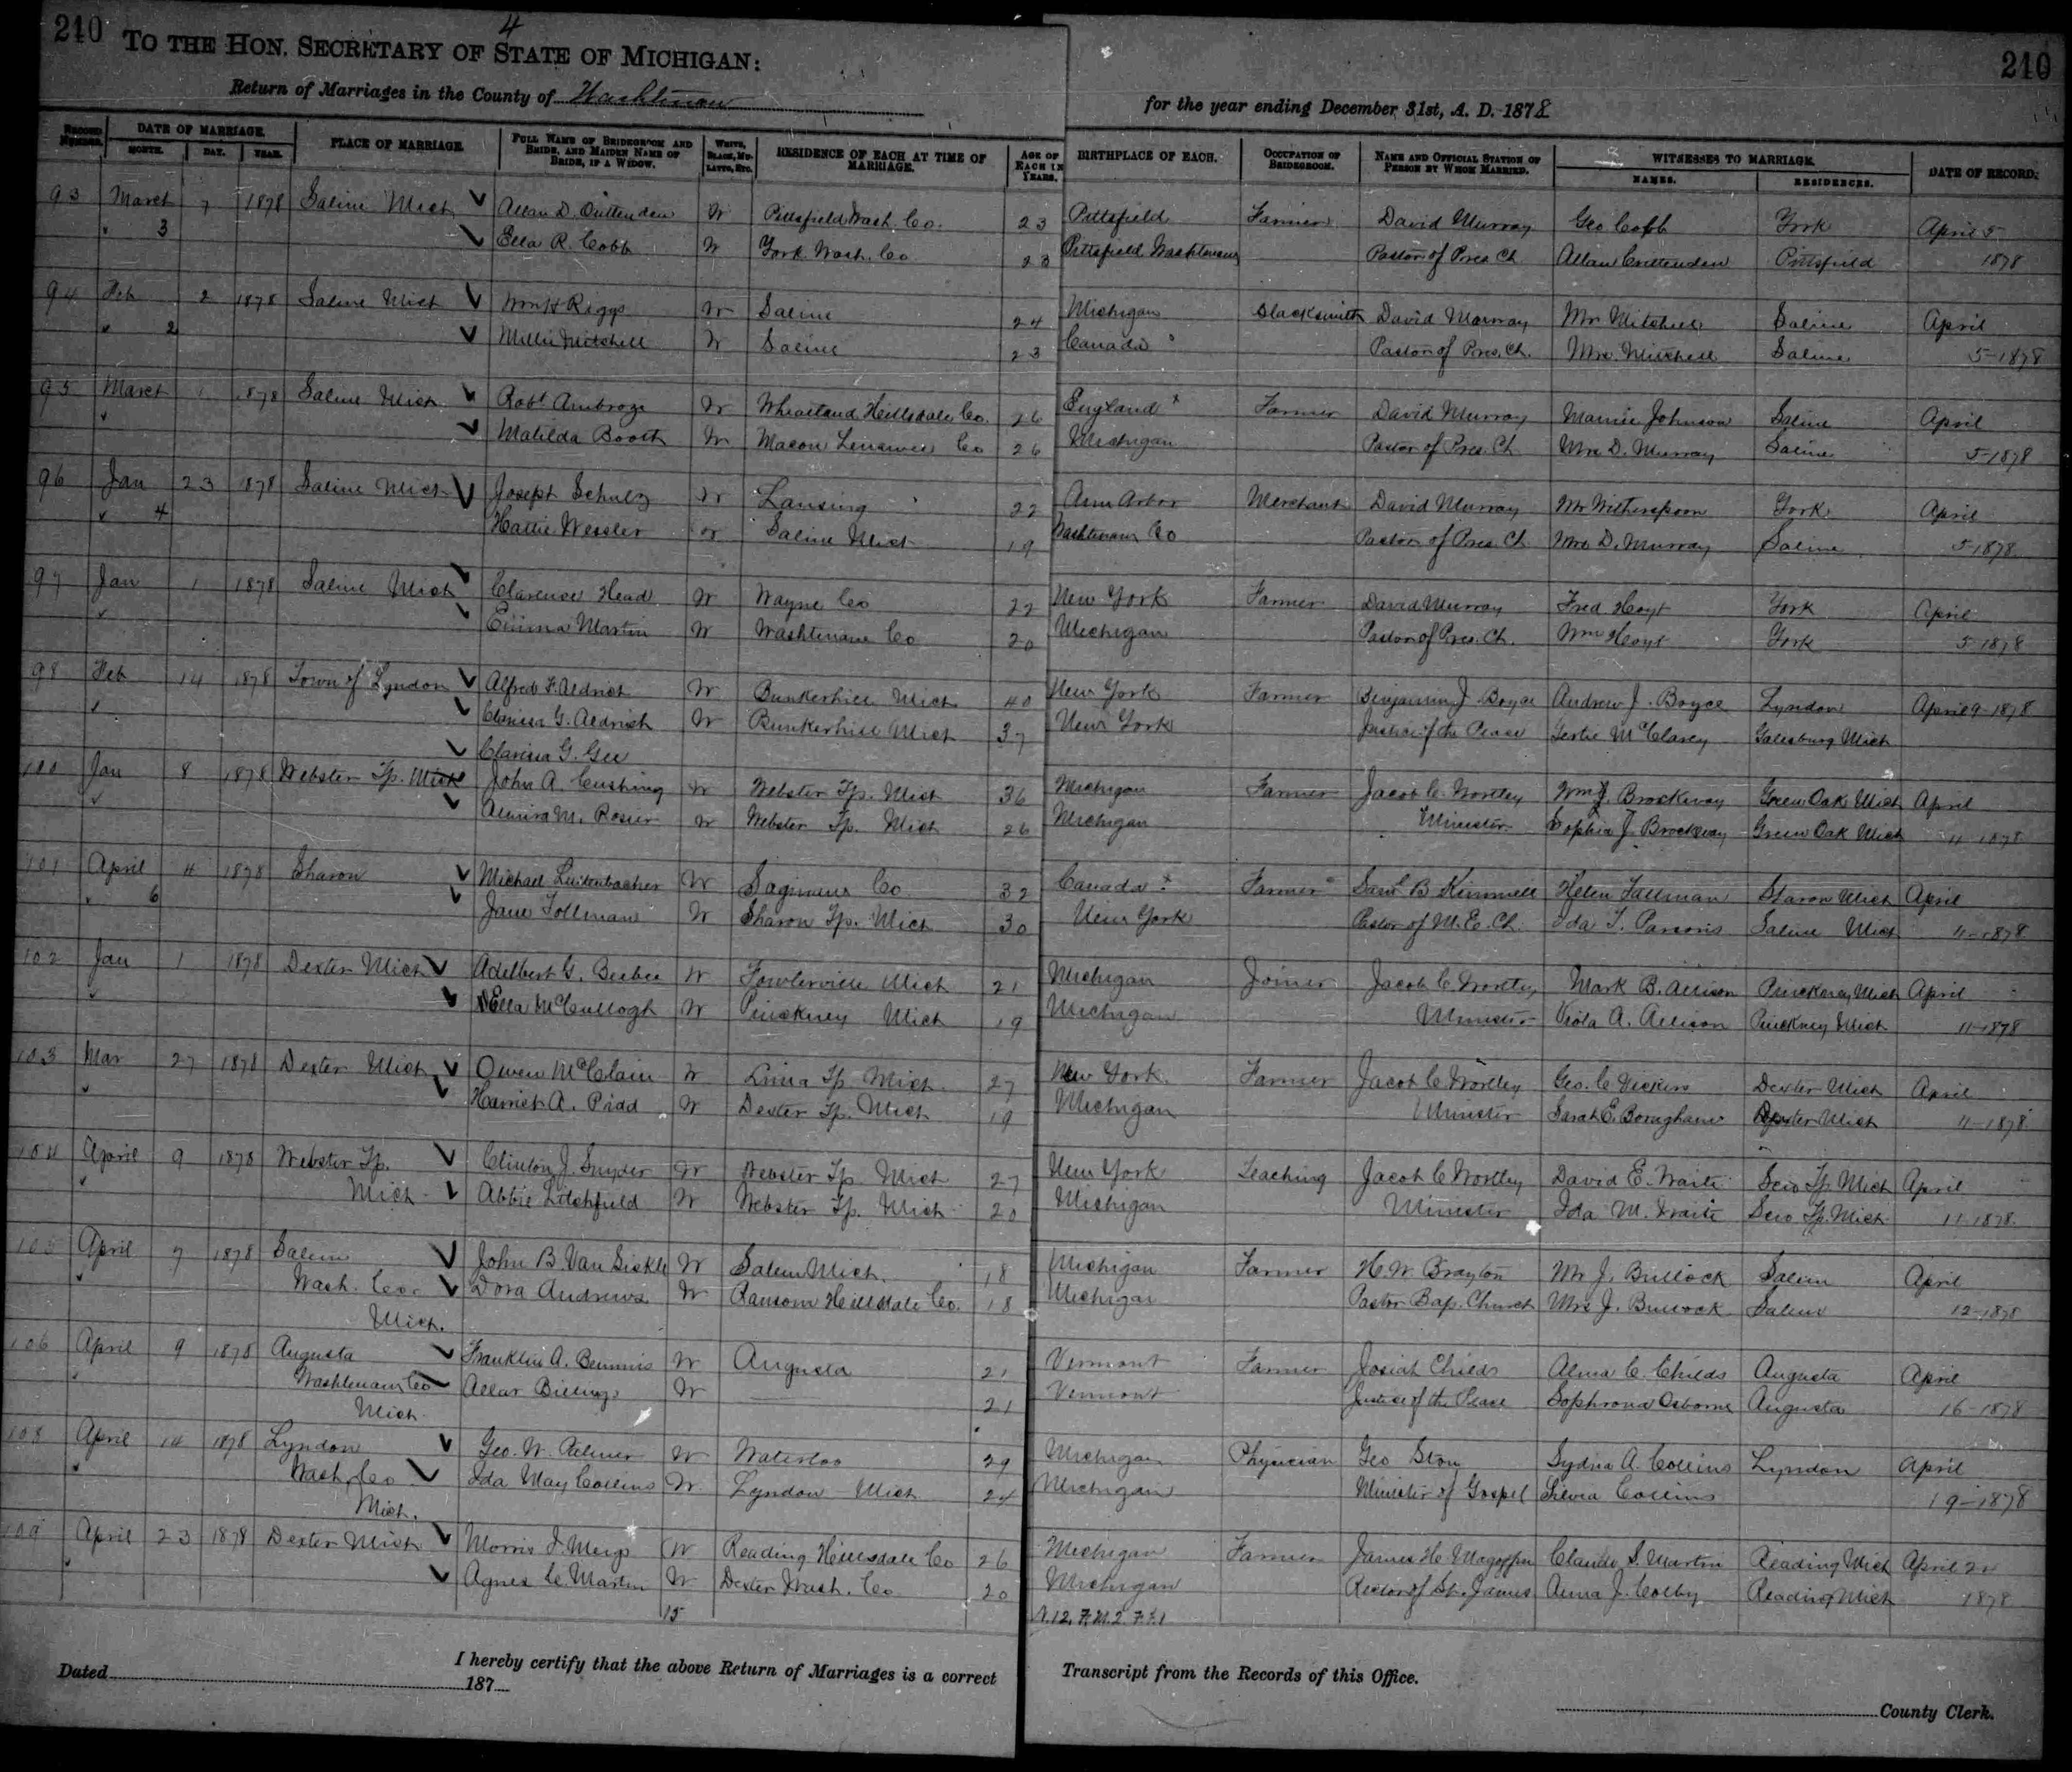 210 4 210
TO THE HON. SECRETARY OF STATE OF MICHIGAN:
Return of Marriages in the County of Washtenaw for the year ending December 31st, A. D. 1878
RECORD NUMBER. DATE OF MARRIAGE. PLACE OF MARRIAGE. FULL NAME OF BRIDEGROOM AND BRIDE, AND MAIDEN NAME OF BRIDE, IF A WIDOW. WHITE, BLACK, MULATTO, ETC. RESIDENCE OF EACH AT TIME OF MARRIAGE. AGE OF EACH IN YEARS. BIRTHPLACE OF EACH. OCCUPATION OF BRIDEGROOM. NAME AND OFFICIAL STATION OF PERSON BY WHOM MARRIED. WITNESSES TO MARRIAGE. DATE OF RECORD.
MONTH. DAY. YEAR. NAMES. RESIDENCES.
93 March 7 1878 Saline Mich Allan D. W Pittsfield Wash. Co. 23 Pittsfield Farmer David Murray Geo Cobb York April 5
3 Ella R. Cobb W York Wash. Co 23 Pittsfield Washtenaw Pastor of Pres Ch Allan Crittenden Pittsfield 1878
94 Feb 2 1878 Saline Mich Wm H Riggs W Saline 24 Michigan Blacksmith David Murray Mr Mitchell Saline April
2 Millie Mitchell W Saline 23 Canada Pastor of Pres. Ch. Mrs. Mitchell Saline 5-1878
95 March 1 1878 Saline Mich Robt Ambroze W Wheatland Hillsdale Co. 26 England Farmer David Murray Mamie Johnson Saline April
Matilda Booth W Macon Lenawee Co 26 Michigan Pastor of Pres. Ch Mrs D. Murray Saline 5-1878
96 Jan 23 1878 Saline Mich Joseph Schulz W Lansing 22 Ann Arbor Merchant David Murray Mr Witherspoon York April
4 Hattie Wessler W Saline Mich 19 Washtenaw Co Pastor of Pres. Ch Mrs D. Murray Saline 5-1878
97 Jan 1 1878 Saline Mich Clarence Head W Wayne Co 22 New York Farmer David Murray Fred Hoyt York April
Emma Martin W Washtenaw Co 20 Michigan Pastor of Pres. Ch. Wm Hoyt York 5-1878
98 Feb 14 1878 Town of Lyndon Alfred F. Aldrich W Bunkerhill Mich 40 New York Farmer Benjamin J Boyce Andrew J. Boyce Lyndon April 9-1878
Clarissa G. Aldrich W Bunkerhill Mich 37 New York Justice of the Peace Gertie McClarey Galesburg Mich
Clarissa G. Gee
100 Jan 8 1878 Webster Tp. Mich John A. Cushing W Webster Tp. Mich 36 Michigan Farmer Jacob C. Wortley Wm J. Brockway Green Oak Mich April
Almira M. Rosier W Webster Tp. Mich 26 Michigan Minister Sophia J. Brockway Green Oak Mich 11-1878
101 April 4 1878 Sharon Michael Luitenbacher W Saginaw Co 32 Canada Farmer Saml B Kimmell Helen Tallman Sharon Mich April
6 Jane Tollman W Sharon Tp. Mich 30 New York Pastor of M. E. Ch. Ida T. Parsons Saline Mich 11-1878
102 Jan 1 1878 Dexter Mich Adelbert G. Beebee W Fowlerville Mich 21 Michigan Joiner Jacob C Wortley Mark B. Allison Pinckney Mich April
Ella McCullogh W Pinckney Mich 19 Michigan Minister Viola A. Allison Pinckney Mich 11-1878
103 Mar 27 1878 Dexter Mich Owen McClain W Lima Tp Mich 27 New York. Farmer Jacob C Wortley Geo. C Dexter Mich April
Harriet A. Pidd W Dexter Tp. Mich 19 Michigan Minister Sarah E. Dexter Mich 11-1878
104 April 9 1878 Webster Tp. Clinton J. Snyder W Webster Tp. Mich 27 New York Teaching Jacob C Wortley David E. Waite Scio Tp. Mich April
Mich Abbie Litchfield W Webster Tp. Mich 20 Michigan Minister Ida M. Waite Scio Tp. Mich 11-1878
105 April 7 1878 Salem John B. Van Sickle W Salem Mich. 18 Michigan Farmer H. W. Brayton Mr J. Bullock Salem April
Wash. Co. Dora Andrews W Ransom Hillsdale Co. 18 Michigan Pastor Bap. Church Mrs J. Bullock Salem 12-1878
Mich.
106 April 9 1878 Augusta Franklin A. Bemmis W Augusta 21 Vermont Farmer Josiah Childs Alma C. Childs Augusta April
Washtenaw Co Billings W 21 Vermont Justice of the Peace Sophrona Osborne Augusta 16-1878
Mich
108 April 14 1878 Lyndon Geo. W. Palmer W Waterloo 29 Michigan Physician Geo Sydna A. Collins Lyndon April
Wash. Co Ida May Collins W Lyndon Mich 24 Michigan Minister of Gospel Silvia Collins 19-1878
Mich.
109 April 23 1878 Dexter Mich Morris J. Meigs W Reading Hillsdale Co 26 Michigan Farmer James H. Claude S. Martin Reading Mich April 24
Agnes C. Martin W Dexter Wash. Co 20 Michigan Rector of St. James Anna J. Colby Reading Mich 1878
15 N.12. F.M.2. F.F.1
I hereby certify that the above Return of Marriages is a correct Transcript from the Records of this Office.
Dated 187
County Clerk.